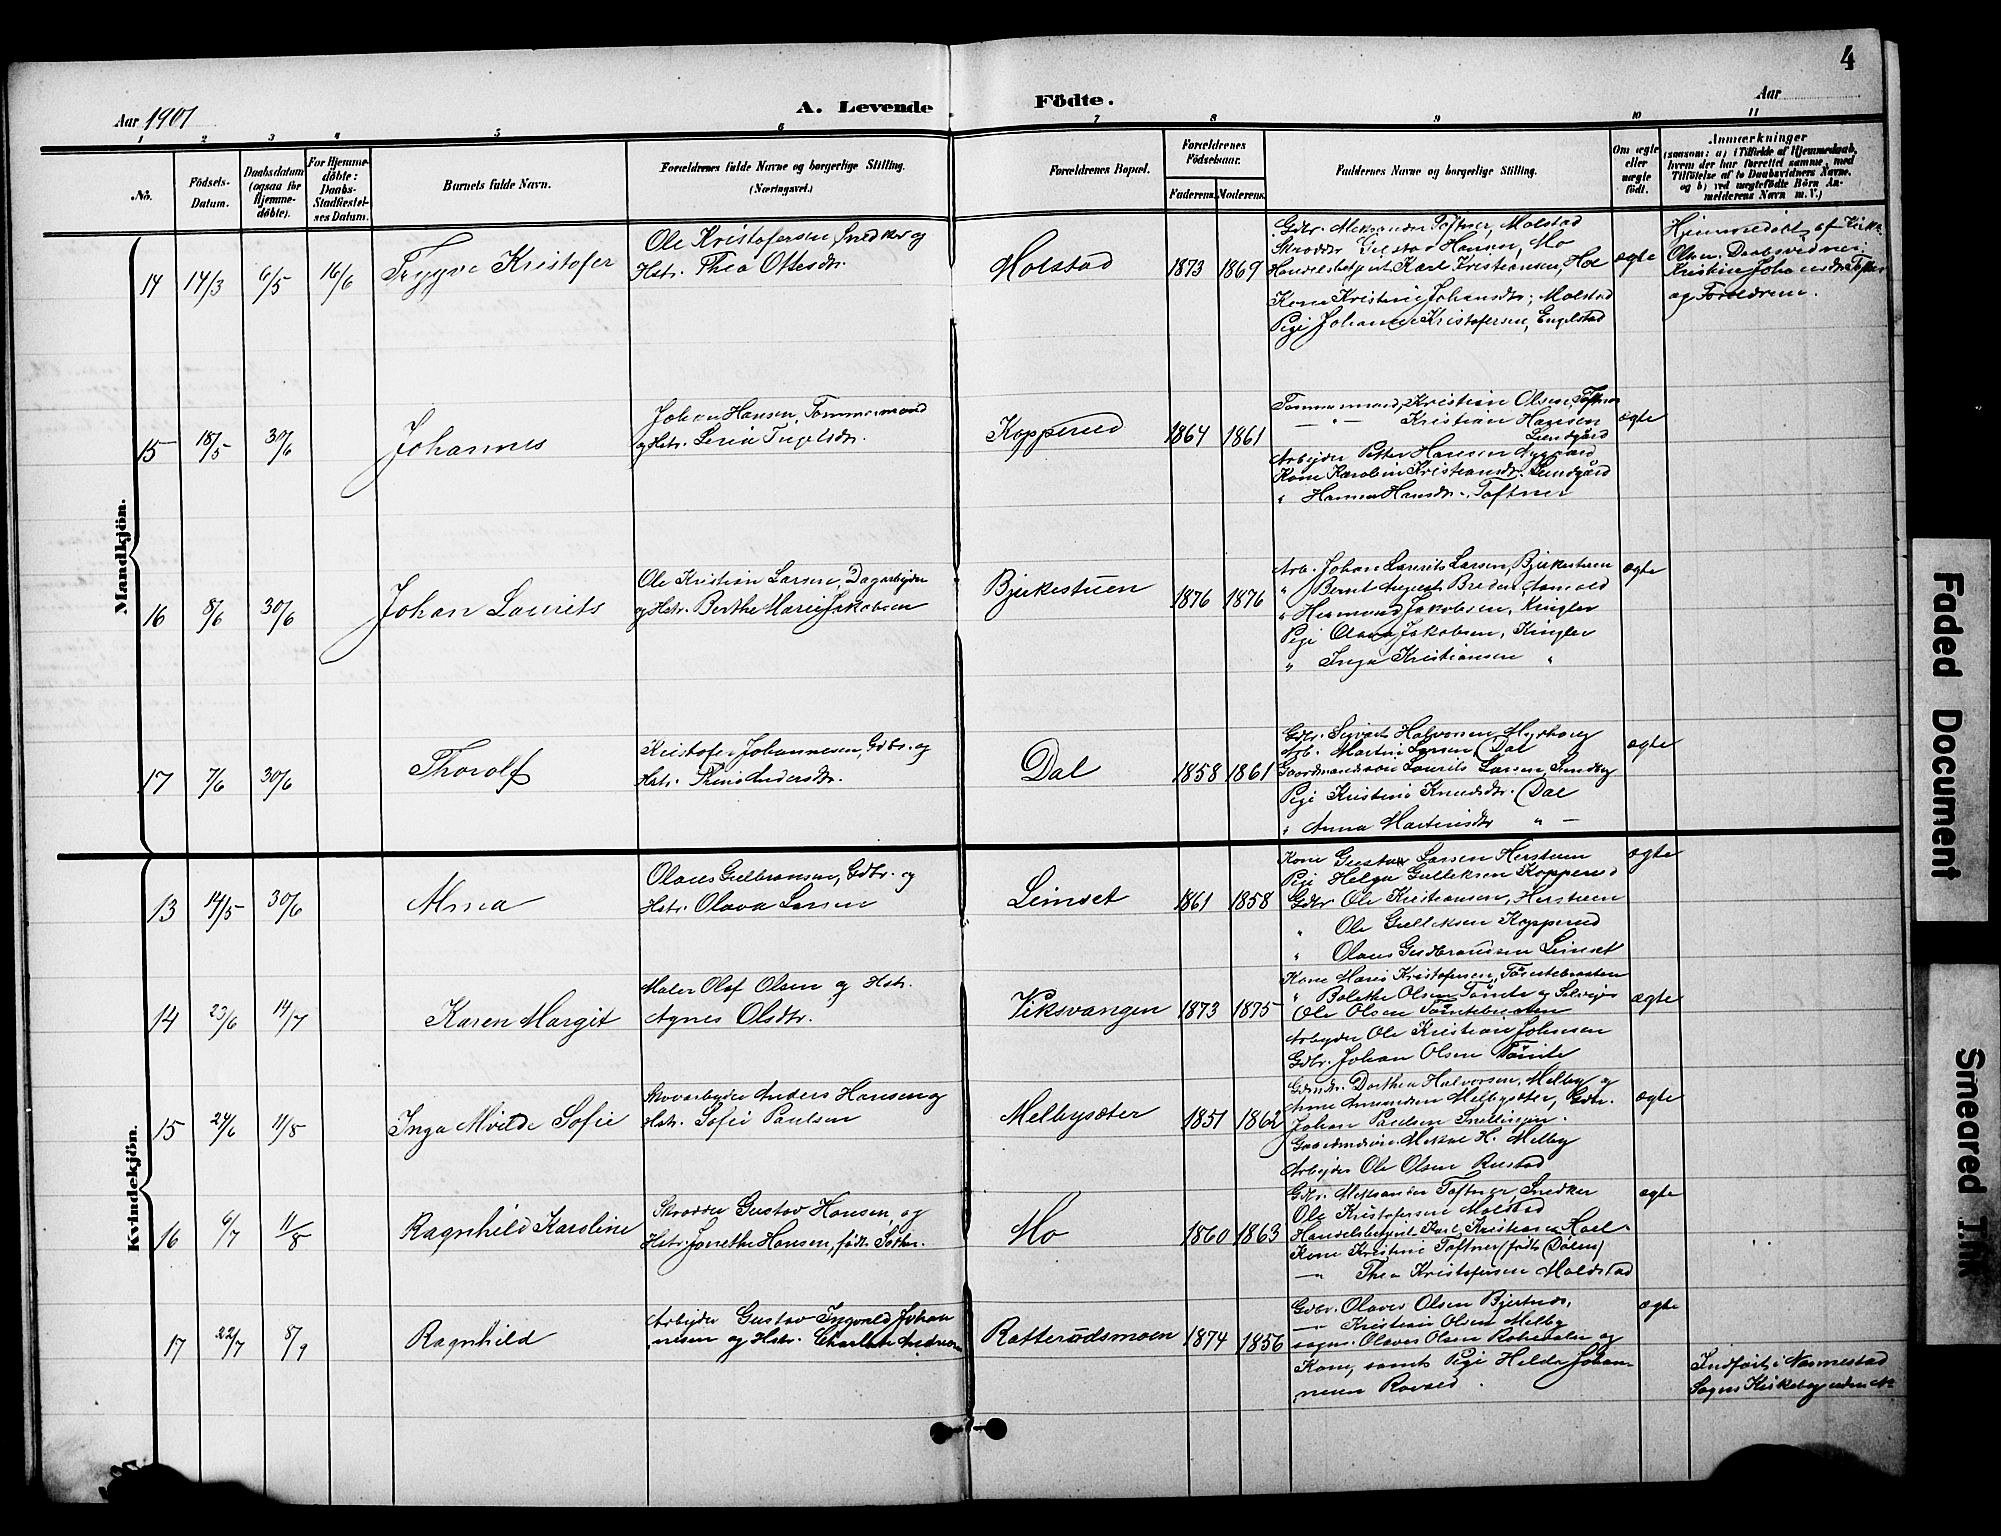 4
Aar 1901
A. Levende
Födte.
Aar
1 2 3 4 5 6 7 8 9 10 11
No.
Födsels-Datum.
Daabsdatum (ogsaa for Hjemmedöbte).
For Hjemmedöbte: Daabs-Stadfæstelses Datum.
Barnets fulde Navn.
Forældrenes fulde Navne og borgerlige Stilling.
(Næringsvei.)
Forældrenes Bopæl.
Forældrenes Födselsaar.
Faderens. Moderens.
Faddernes Navne og borgerlige Stilling.
Om ægte eller uægte født.
Anmærkninger
(saasom: a) i Tilfælde af Hjemmedaab,
hvem der har forrettet samme, med
Tilföielse af to Daabsvidners Navne,
og b) ved uægtefödte Börn Anmelderens Navn m. V.)
Mandkjön.
14 14/3 6/5 16/6 Trygve Kristofer
Ole Kristofersen, Snedker og
Hstr. Thea Ottesdtr.
Molstad 1873 1869
Gdbr. Aleksander Toftner, Molstad
Skrædder Gustav Hansen, Mo
Handelsbetjent Karl Kristiansen, Hoel
Kone Kristine Johansdtr., Molstad
Pige Johanne Kristofersen, Engelstad
ægte
Hjemmedøbt af Kirk.
Olsen. Daabsvidner:
Kristine Johansdtr. Toftner
og Forældrene.
15 18/5 30/6 Johannes
Johan Hansen, Tømmermand
og Hstr. Serine
Kopperud 1864 1861
Tømmermand, Kristian Olsen, Toftner
— " — Kristian Hansen
Lundgård
Arbejder Petter Hansen Nygaard
Kone Karoline Kristiansdtr. Lundgård
" Hanna Hansdtr., Toftner
ægte
16 8/6 30/6 Johan Laurits
Ole Kristian Larsen, Dagarbejder
og Hstr. Berthe Marie Jakobsen
Bjerkestuen 1876 1876
Arb. Johan Laurits Larsen, Bjerkestuen
" Bernt August Breden
" Hermand Jakobsen, Kingler
Pige Olava Jakobsen, Kingler
" Inga Kristiansen "
ægte
17 7/6 30/6 Thorolf
Kristofer Johannesen, Gdbr. og
Hstr. Thrine Andersdtr.
Dal 1858 1861
Gdbr. Sigvart Halvorsen Myrborg
Arb. Martin Larsen Dal
Gaardmandssøn Laurits Larsen Sundby
Pige Kristine Knudsdtr. Dal
" Anna Martinsdtr " —
ægte
Kvindekjön.
13 14/5 30/6 Alma
Olaus Gulbransen, Gdbr. og
Hstr. Olava Larsen
Limset 1861 1858
Kone Gusta Larsen Herstuen
Pige Helga Gulleksen Kopperud
Gdbr Ole Kristiansen, Herstuen
" Ole Gulleksen Kopperud
" Olaus Guldbrandsen Limset
ægte
14 23/6 14/7 Karen Margit
Maler Olaf Olsen og Hstr.
Agnes Olsdtr.
Viksvangen 1873 1875
Kone Maren Kristofersen, Tømtebraaten
" Bolethe Olsen Tømte og
Ole Olsen Tømtebraaten
Arbejder Ole Kristian Johnsen
Gdbr. Johan Olsen Tömte
ægte
15 24/6 11/8 Inga Alvilde Sofie
Skovarbejder Anders Hansen og
Hstr. Sofie Paulsen
Melbysæter 1851 1862
Dorthea Halvorsen, Melby og
Anne Amundsen Melbysæter, Gdbr.
Johan Paulsen
Gaardmandssøn H. Melby
Arbejder Ole Olsen Rustad
ægte
16 6/7 11/8 Ragnhild Karoline
Skrædder Gustav Hansen og
Hstr. Janethe Hansen, født
Mo 1860 1863
Gdbr. Aleksander Toftner, Snedker
Ole Kristofersen Molstad
Handelsbetjent Karl Kristiansen Hoel
Kone Kristine Toftner (født Dølen)
— " Thea Kristofersen Moldstad
ægte
17 22/7 8/9 Ragnhild
Arbejder Gustav Ingvald Johan
nesen og Hstr. Charlotte Andersen
Ratterudsmoen 1874 1856
Gdbr. Olaves Olsen Bjertnæs,
— " Kristian Olsen Melby
Olaves Olsen og
Kone, samt Pige Hilda Johan
nesen
ægte
Indført i Nannestad
Sogns Kirkebog uden No
Faded Document
Smeared Ink